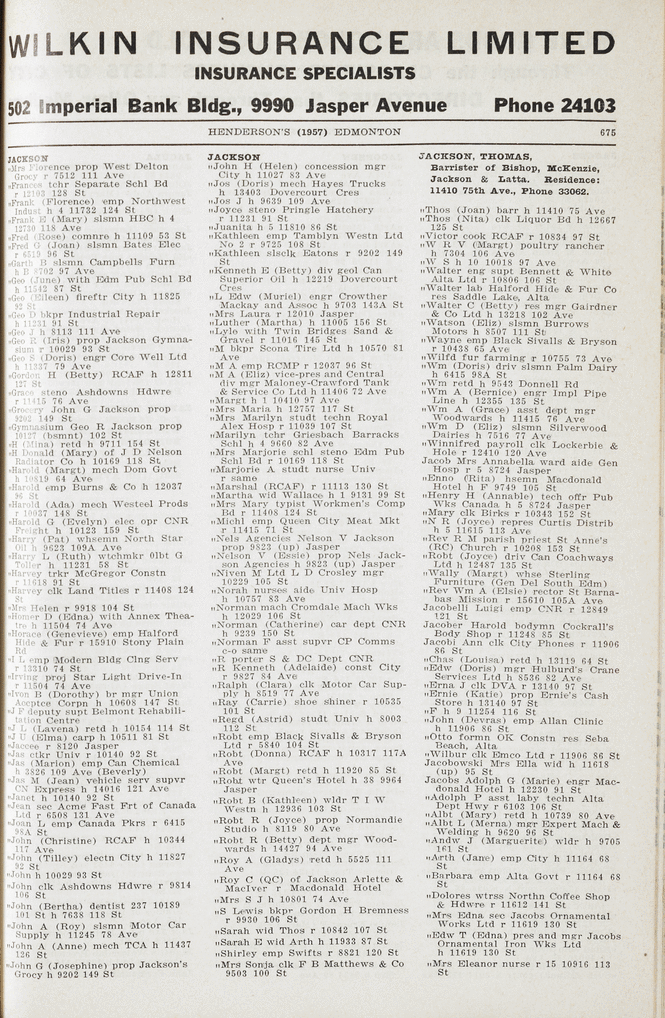 WILKIN INSURANCE LIMITED
INSURANCE SPECIALISTS
502 Imperial Bank Bldg., 9990 Jasper Avenue Phone 24103
HENDERSON'S (1957) EDMONTON 675
JACKSON
„Mrs Florence prop West Delton
Grocy r 7512 111 Ave
„Frances tchr Separate Schl Bd
r 12103 128 St
„Frank (Florence) emp Northwest
Indust h 4 11732 124 St
„Frank E (Mary) slsmn HBC h 4
12730 118 Ave
„Fred (Rose) comnre h 11109 53 St
„Fred G (Joan) slsmn Bates Elec
r 6519 96 St
„Garth B slsmn Campbells Furn
h B 8702 97 Ave
„Geo (June) with Edm Pub Schl Bd
h 11542 87 St
„Geo (Eileen) fireftr City h 11825
92 St
„Geo D bkpr Industrial Repair
h 11231 91 St
„Geo D h 8113 111 Ave
„Geo R (Iris) prop Jackson Gymna-
sium r 10029 93 St
„Geo S (Doris) engr Core Well Ltd
h 11337 79 Ave
„Gordon H (Betty) RCAF h 12811
127 St
„Grace steno Ashdowns Hdwre
r 11415 76 Ave
„Grocery John G Jackson prop
9202 149 St
„Gymnasium Geo R Jackson prop
10127 (bsmnt) 102 St
„H (Mina) retd h 9711 154 St
„H Donald (Mary) of J D Nelson
Radiator Co h 10169 118 St
„Harold (Margt) mech Dom Govt
h 10819 64 Ave
„Harold emp Burns & Co h 12037
96 St
„Harold (Ada) mech Westeel Prods
r 10037 148 St
„Harold G (Evelyn) elec opr CNR
Freight h 10123 159 St
„Harry (Pat) whsemn North Star
Oil h 9623 109A Ave
„Harry L (Ruth) wtchmkr Olbt G
Toller h 11231 58 St
„Harvey trkr McGregor Constn
r 11618 91 St
„Harvey clk Land Titles r 11408 124
St
„Mrs Helen r 9918 104 St
„Homer D (Edna) with Annex Thea-
tre h 11504 74 Ave
„Horace (Genevieve) emp Halford
Hide & Fur r 15910 Stony Plain
Rd
„I L emp Modern Bldg Clng Serv
r 13310 74 St
„Irving proj Star Light Drive-In
r 11504 74 Ave
„Ivon B (Dorothy) br mgr Union
Accptce Corpn h 10608 147 St
„J F deputy supt Belmont Rehabili-
tation Centre
„J L (Lavena) retd h 10154 114 St
„J U (Elma) carp h 10511 81 St
„Jaccee r 8120 Jasper
„Jas ctkr Univ r 10140 92 St
„Jas (Marion) emp Can Chemical
h 3826 109 Ave (Beverly)
„Jas M (Jean) vehicle serv supvr
CN Express h 14016 121 Ave
„Janet h 10140 92 St
„Jean sec Acme Fast Frt of Canada
Ltd r 6508 131 Ave
„Joan L emp Canada Pkrs r 6415
98A St
„John (Christine) RCAF h 10344
117 Ave
„John (Tilley) electn City h 11827
92 St
„John h 10029 93 St
„John clk Ashdowns Hdwre r 9814
106 St
„John (Bertha) dentist 237 10189
101 St h 7638 118 St
„John A (Roy) slsmn Motor Car
Supply h 11245 78 Ave
„John A (Anne) mech TCA h 11437
126 St
„John G (Josephine) prop Jackson's
Grocy h 9202 149 St
JACKSON
„John H (Helen) concession mgr
City h 11027 83 Ave
„Jos (Doris) mech Hayes Trucks
h 13403 Dovercourt Cres
„Jos J h 9639 109 Ave
„Joyce steno Pringle Hatchery
r 11231 91 St
„Juanita h 5 11810 86 St
„Kathleen emp Tamblyn Westn Ltd
No 2 r 9725 108 St
„Kathleen slsclk Eatons r 9202 149
St
„Kenneth E (Betty) div geol Can
Superior Oil h 12219 Dovercourt
Cres
„L Edw (Muriel) engr Crowther
Mackay and Assoc h 9703 143A St
„Mrs Laura r 12010 Jasper
„Luther (Martha) h 11005 156 St
„Lyle with Twin Bridges Sand &
Gravel r 11016 145 St
„M bkpr Scona Tire Ltd h 10570 81
Ave
„M A emp RCMP r 12037 96 St
„M A (Eliz) vice-pres and Central
div mgr Maloney-Crawford Tank
& Service Co Ltd h 11406 72 Ave
„Margt h 1 10410 97 Ave
„Mrs Maria h 12757 117 St
„Mrs Marilyn studt techn Royal
Alex Hosp r 11039 107 St
„Marilyn tchr Griesbach Barracks
Schl h 4 9660 82 Ave
„Mrs Marjorie schl steno Edm Pub
Schl Bd r 10169 118 St
„Marjorie A studt nurse Univ
r same
„Marshal (RCAF) r 11113 130 St
„Martha wid Wallace h 1 9131 99 St
„Mrs Mary typist Workmen's Comp
Bd r 11408 124 St
„Michl emp Queen City Meat Mkt
r 11415 71 St
„Nels Agencies Nelson V Jackson
prop 9823 (up) Jasper
„Nelson V (Essie) prop Nels Jack-
son Agencies h 9823 (up) Jasper
„Niven M Ltd L D Crosley mgr
10229 105 St
„Norah nurses aide Univ Hosp
h 10757 83 Ave
„Norman mach Cromdale Mach Wks
h 12029 106 St
„Norman (Catherine) car dept CNR
h 9239 150 St
„Norman F asst supvr CP Comms
c-o same
„R porter S & DC Dept CNR
„R Kenneth (Adelaide) const City
r 9827 84 Ave
„Ralph (Clara) clk Motor Car Sup-
ply h 8519 77 Ave
„Ray (Carrie) shoe shiner r 10535
101 St
„Regd (Astrid) studt Univ h 8003
112 St
„Robt emp Black Sivalls & Bryson
Ltd r 5840 104 St
„Robt (Donna) RCAF h 10317 117A
Ave
„Robt (Margt) retd h 11920 85 St
„Robt wtr Queen's Hotel h 38 9964
Jasper
„Robt B (Kathleen) wldr T I W
Westn h 12936 103 St
„Robt R (Joyce) prop Normandie
Studio h 8119 80 Ave
„Robt R (Betty) dept mgr Wood-
wards h 14427 94 Ave
„Roy A (Gladys) retd h 5525 111
Ave
„Roy C (QC) of Jackson Arlette &
MacIver r Macdonald Hotel
„Mrs S J h 10801 74 Ave
„S Lewis bkpr Gordon H Bremness
r 9930 106 St
„Sarah wid Thos r 10842 107 St
„Sarah E wid Arth h 11933 87 St
„Shirley emp Swifts r 8821 120 St
„Mrs Sonja clk F B Matthews & Co
9503 100 St
JACKSON, THOMAS,
Barrister of Bishop, McKenzie,
Jackson & Latta. Residence:
11410 75th Ave., Phone 33062.
„Thos (Joan) barr h 11410 75 Ave
„Thos (Nita) clk Liquor Bd h 12667
125 St
„Victor cook RCAF r 10834 97 St
„W R V (Margt) poultry rancher
h 7304 106 Ave
„W S h 10 10018 97 Ave
„Walter eng supt Bennett & White
Alta Ltd r 10806 106 St
„Walter lab Halford Hide & Fur Co
res Saddle Lake, Alta
„Walter C (Betty) res mgr Gairdner
& Co Ltd h 13218 102 Ave
„Watson (Eliz) slsmn Burrows
Motors h 8507 111 St
„Wayne emp Black Sivalls & Bryson
r 10438 65 Ave
„Wilfd fur farming r 10755 73 Ave
„Wm (Doris) driv slsmn Palm Dairy
h 6415 98A St
„Wm retd h 9543 Donnell Rd
„Wm A (Bernice) engr Impl Pipe
Line h 12355 135 St
„Wm A (Grace) asst dept mgr
Woodwards h 11415 76 Ave
„Wm D (Eliz) slsmn Silverwood
Dairies h 7516 77 Ave
„Winnifred payroll clk Lockerbie &
Hole r 12410 120 Ave
Jacob Mrs Annabella ward aide Gen
Hosp r 5 8724 Jasper
„Enno (Rita) hsemn Macdonald
Hotel h F 9749 105 St
„Henry H (Annable) tech offr Pub
Wks Canada h 5 8724 Jasper
„Mary clk Birks r 10343 152 St
„N R (Joyce) repres Curtis Distrib
h 5 11615 113 Ave
„Rev R M parish priest St Anne's
(RC) Church r 10208 153 St
„Robt (Joyce) driv Can Coachways
Ltd h 12487 135 St
„Wally (Margt) whse Sterling
Furniture (Gen Del South Edm)
„Rev Wm A (Elsie) rector St Barna-
bas Mission r 15610 105A Ave
Jacobelli Luigi emp CNR r 12849
121 St
Jacober Harold bodymn Cockrall's
Body Shop r 11248 85 St
Jacobi Ann clk City Phones r 11906
86 St
„Chas (Louisa) retd h 13119 64 St
„Edw (Doris) mgr Hulburd's Crane
Services Ltd h 8536 82 Ave
„Erna J clk DVA r 13140 97 St
„Ernie (Katie) prop Ernie's Cash
Store h 13140 97 St
„F h 9 11254 116 St
„John (Devras) emp Allan Clinic
h 11906 86 St
„Otto formn OK Constn res Seba
Beach, Alta
„Wilbur clk Emco Ltd r 11906 86 St
Jacobowski Mrs Ella wid h 11618
(up) 95 St
Jacobs Adolph G (Marie) engr Mac-
donald Hotel h 12230 91 St
„Adolph P asst laby techn Alta
Dept Hwy r 6103 106 St
„Albt (Mary) retd h 10739 80 Ave
„Albt L (Merna) mgr Expert Mach &
Welding h 9620 96 St
„Andw J (Marguerite) wldr h 9705
161 St
„Arth (Jane) emp City h 11164 68
St
„Barbara emp Alta Govt r 11164 68
St
„Dolores wtrss Northn Coffee Shop
& Hdwre r 11612 141 St
„Mrs Edna sec Jacobs Ornamental
Works Ltd r 11619 130 St
„Edw T (Edna) pres and mgr Jacobs
Ornamental Iron Wks Ltd
h 11619 130 St
„Mrs Eleanor nurse r 15 10916 113
St